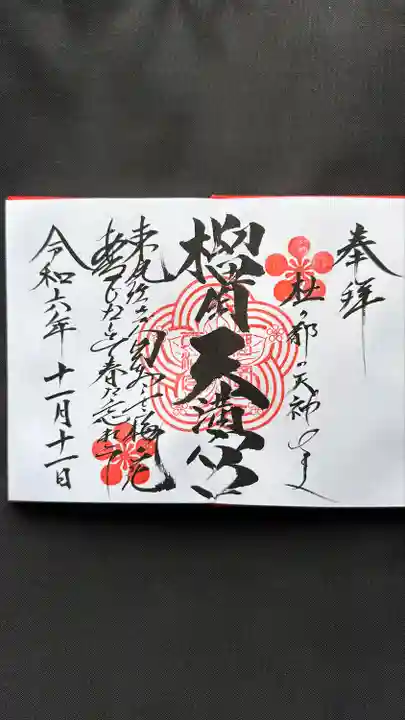 奉拝
杜の都の天神さま
榴岡天満宮
東風吹かば匂ひおこせよ梅の花
あるじなしとて春な忘れそ
令和六年 十一月十一日